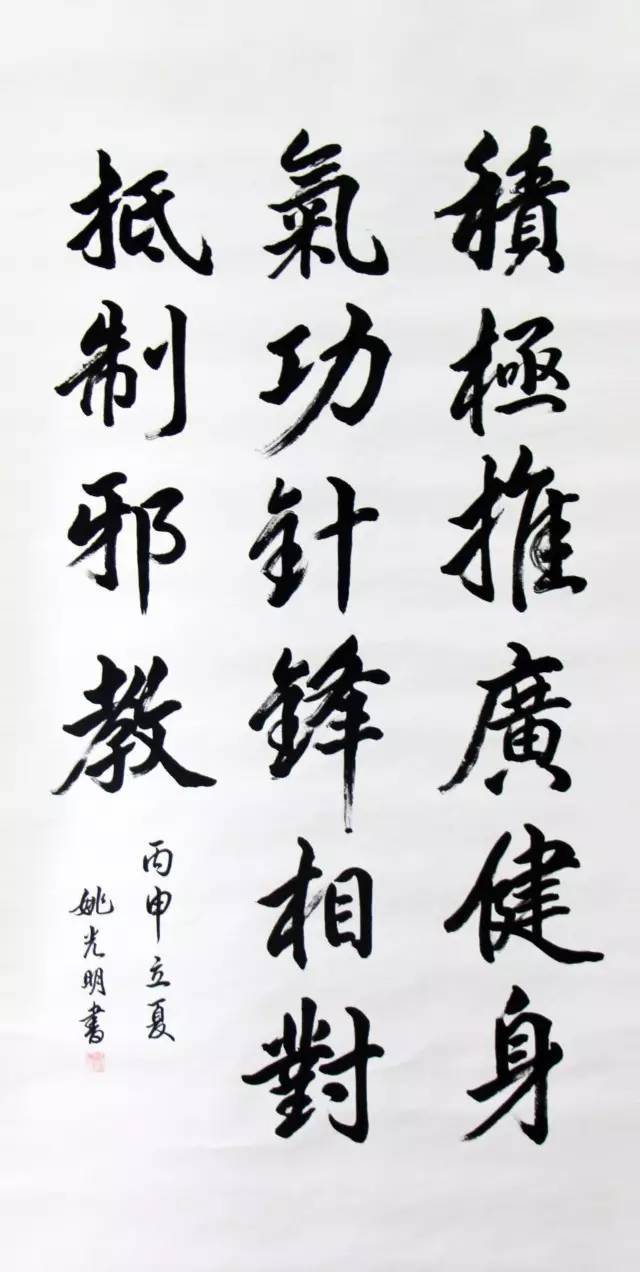 積極推廣健身
氣功針鋒相對
抵制邪教
丙申立夏
姚光明書